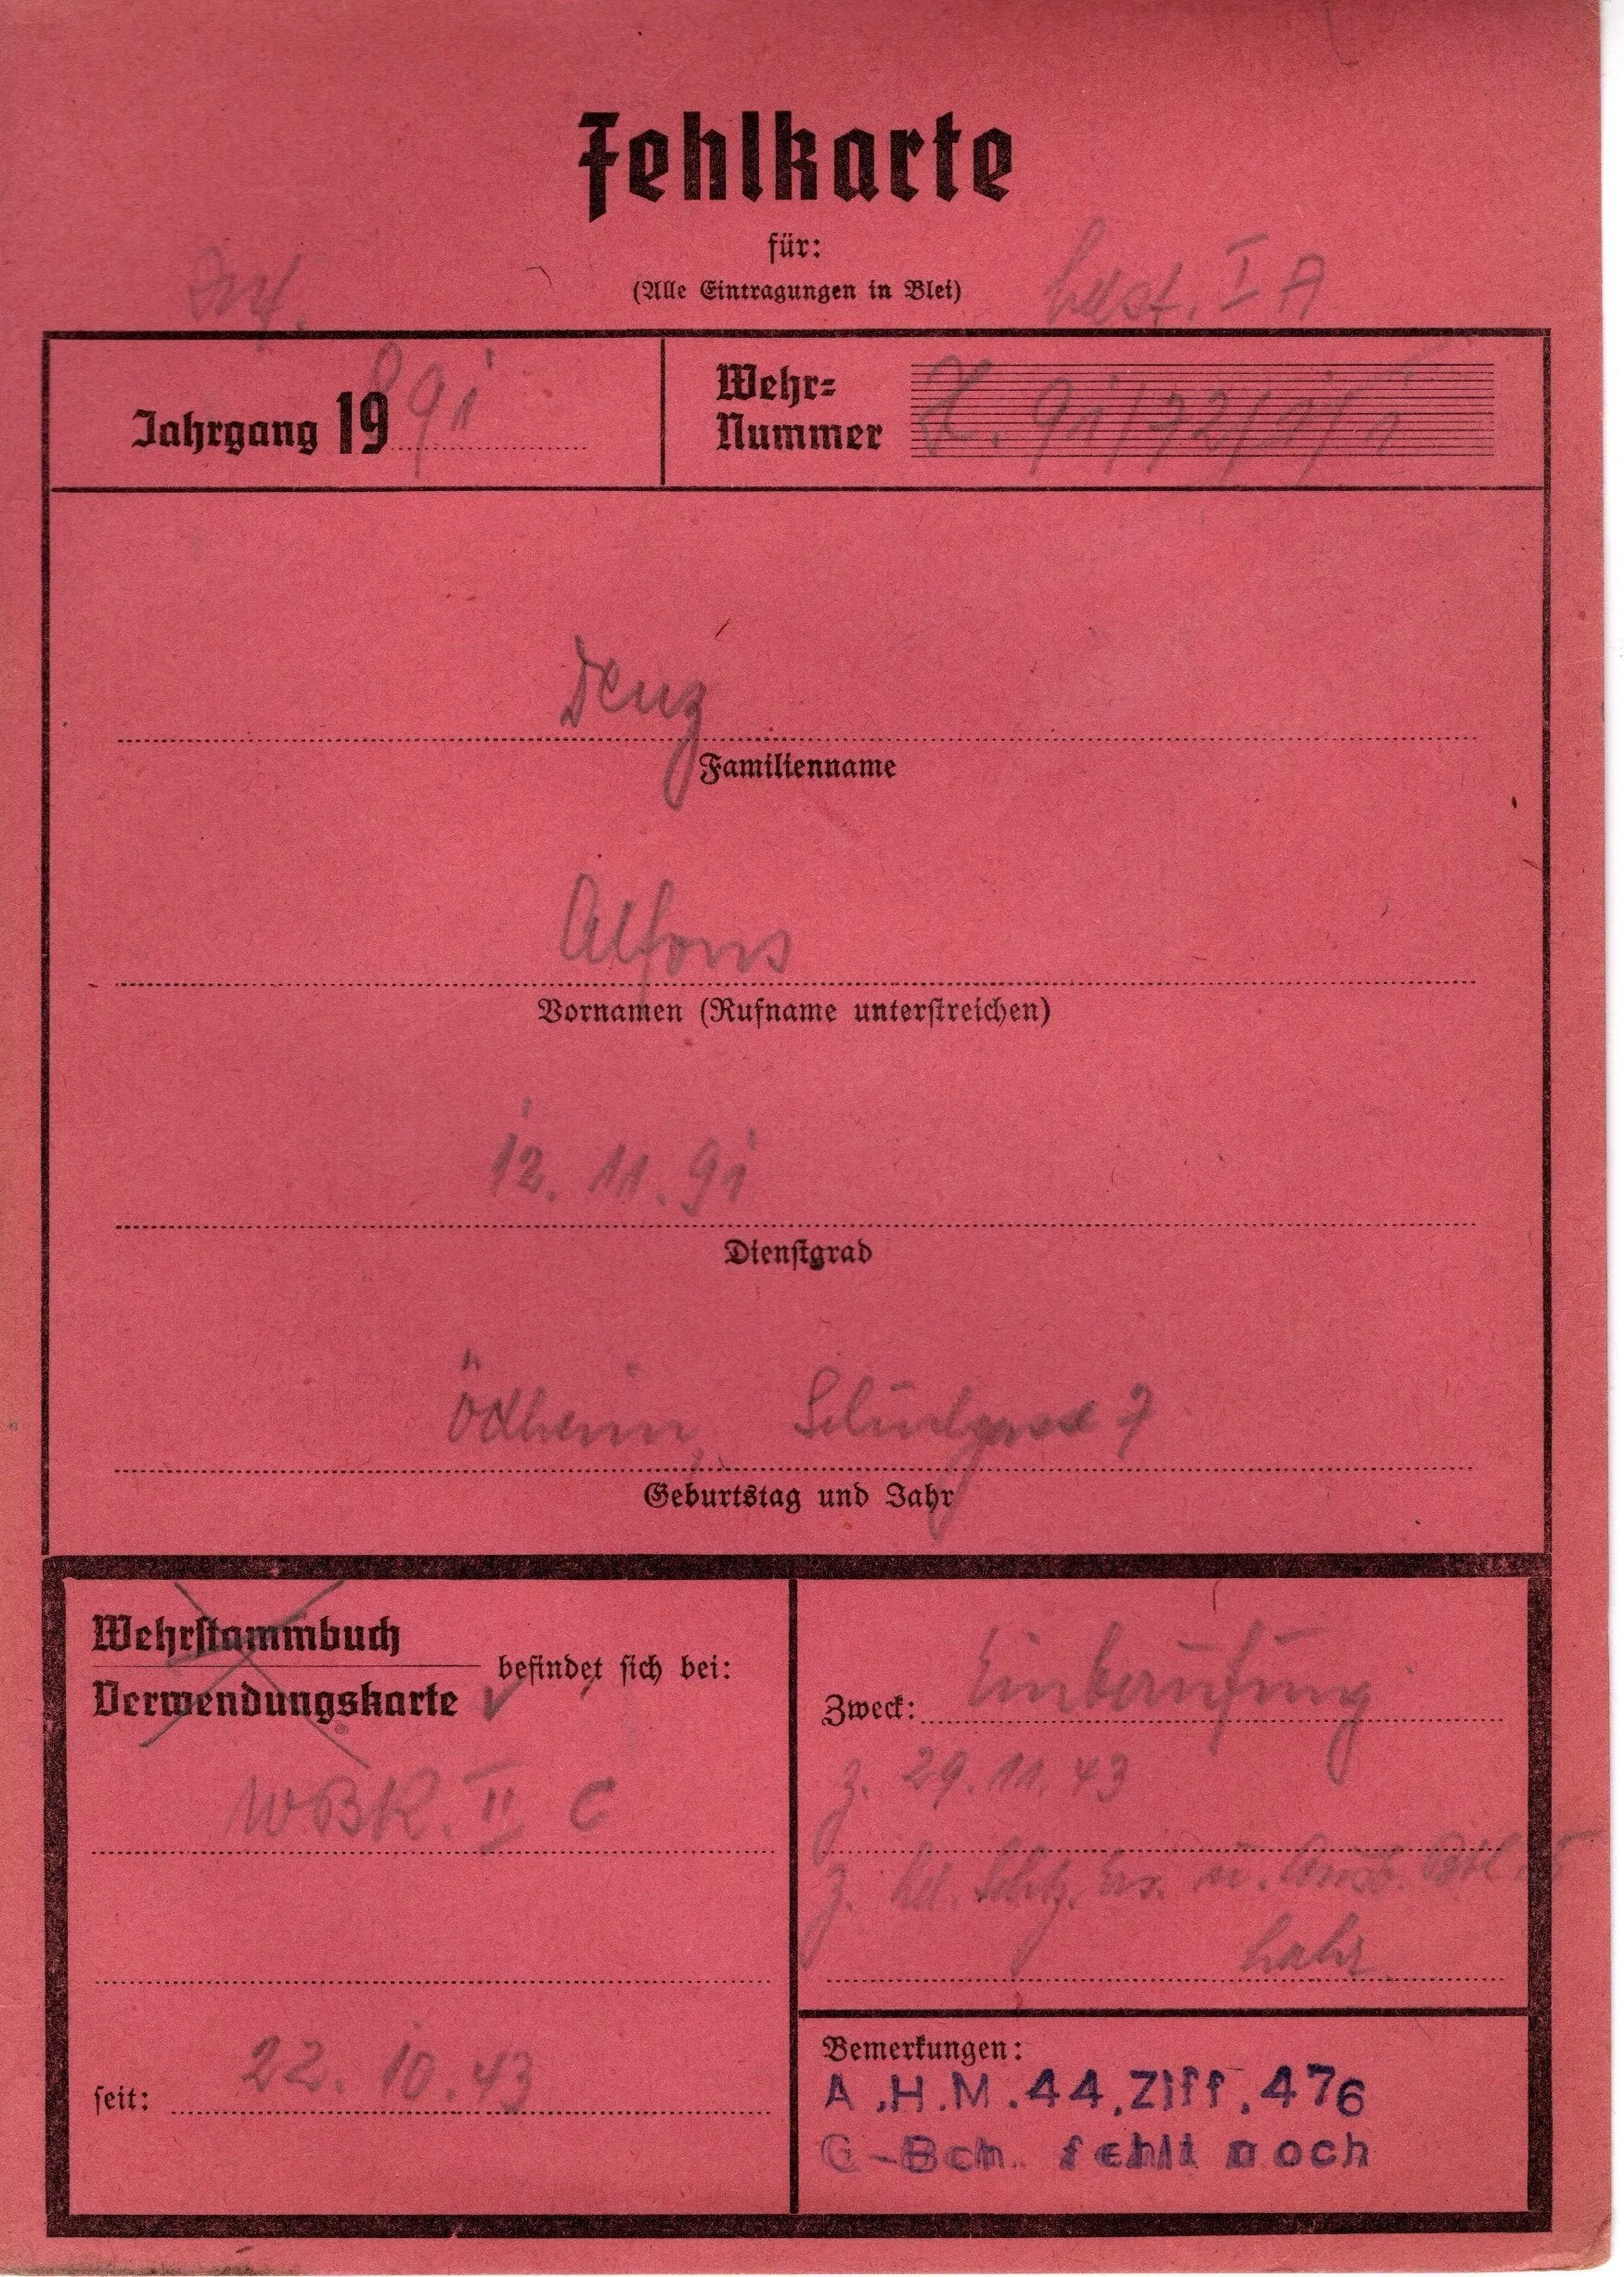 Fehlkarte
für:
(Alle Eintragungen in Blei)
Inf. Ldst. I A
Jahrgang 19 891
Wehr=
Nummer Z. 91/72/9/1
Denz
Familienname
Alfons
Vornamen (Rufname unterstreichen)
12. 11. 91
Dienstgrad
Ödheim, 7
Geburtstag und Jahr
Wehrstammbuch
Verwendungskarte befindet sich bei:
W.B.K. II C
seit: 22. 10. 43
Zweck: Einberufung
z. 29. 11. 43
z. Ld. Schtz. Ers. u. Ausb. Batl. 5
Lahr
Bemerkungen:
A.H.M.44.Ziff.476
G-Bch. fehlt noch